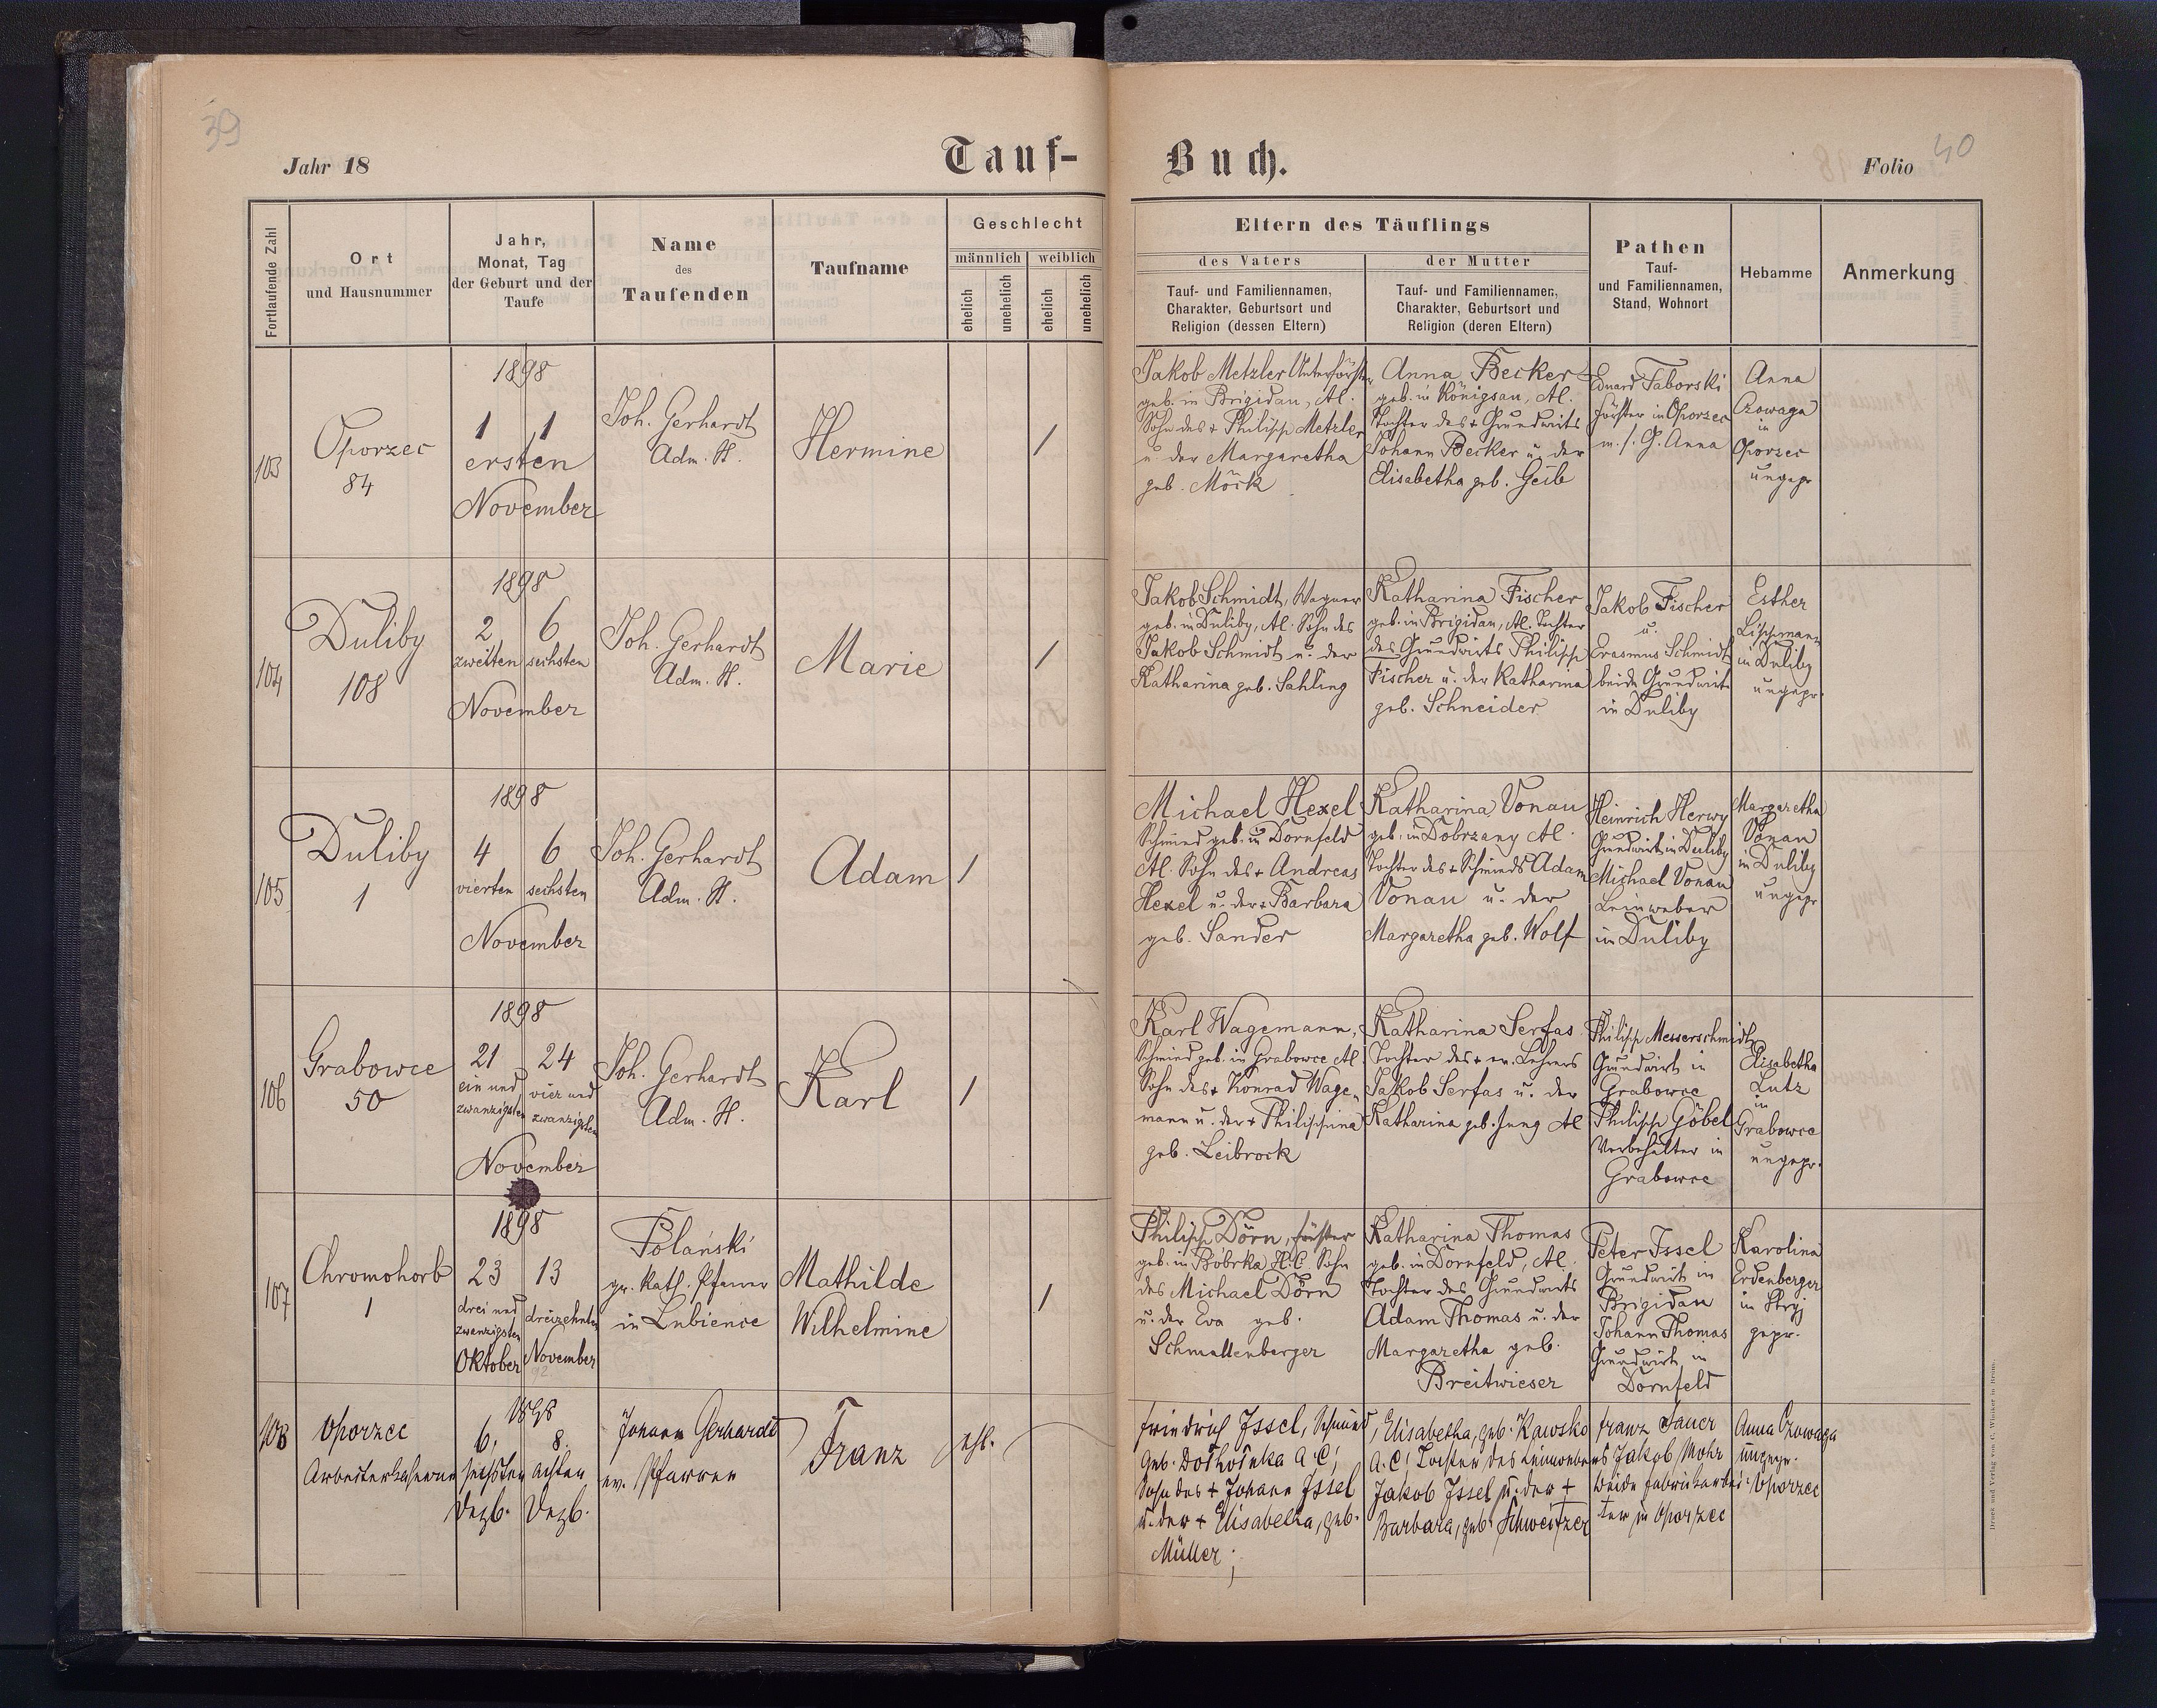 39
Jahr 18
Tauf-
Fortlaufende Zahl
Ort
und Hausnummer
Jahr,
Monat, Tag
der Geburt und der
Taufe
Name
des
Taufenden
Taufname
Geschlecht
männlich
weiblich
ehelich
unehelich
ehelich
unehelich
103
Oporzec
84
1898
1 1
ersten
November
Joh. Gerhardt
Adm. H.
Hermine
1
104
Duliby
108
1898
2 6
zweiten sechsten
November
Joh. Gerhardt
Adm. H.
Marie
1
105
Duliby
1
1898
4 6
vierten sechsten
November
Joh. Gerhardt
Adm. H.
Adam
1
106
Grabowce
50
1898
21 24
ein und vier und
zwanzigsten zwanzigsten
November
Joh. Gerhardt
Adm. H.
Karl
1
107
Chromohorb
1
1898
23 13
drei und
zwanzigsten
Oktober
dreizehnten
November
Polański
gr. kath. Pfarrer
in Lubience
Mathilde
Wilhelmine
1
108
Oporzec
Arbeiterkaserne
1898
6. 8.
sechsten achten
Dezb. Dezb.
Johann Gerhardt
ev. Pfarrer
Franz
ehl.
Buch.
Folio
40
Eltern des Täuflings
des Vaters
Tauf- und Familiennamen,
Charakter, Geburtsort und
Religion (dessen Eltern)
der Mutter
Tauf- und Familiennamen,
Charakter, Geburtsort und
Religion (deren Eltern)
Pathen
Tauf-
und Familiennamen,
Stand, Wohnort
Hebamme
Anmerkung
Jakob Metzler Unterförster
geb. in Brigidau, Al.
Sohn des + Philipp Metzler
u. der Margaretha
geb. Möck
Anna Becker
geb. in Königsau, Al.
Tochter des + Grundwirts
Johann Becker u. der
Elisabetha geb. Geib
Eduard Taborski
Förster in Oporzec
m. s. G. Anna
Anna
Ozowaga
in
Oporzec
ungepr
Jakob Schmidt, Wagner
geb. in Duliby, Al. Sohn des
Jakob Schmidt u. der
Katharina geb. Sahling
Katharina Fischer
geb. in Brigidau, Al. Tochter
des Grundwirts Philipp
Fischer u. der Katharina
geb. Schneider
Jakob Fischer
u.
Erasmus Schmidt
beide Grundwirte
in Duliby
Esther
Lischmann
in Duliby
ungepr.
Michael Hexel
Schmied geb. in Dornfeld
Al. Sohn des + Andreas
Hexel u. der + Barbara
geb. Sander
Katharina Vonau
geb. in Dobrzany Al.
Tochter des + Schmieds Adam
Vonau u. der
Margaretha geb. Wolf
Heinrich Herwy
Grundwirt in Duliby
Michael Vonau
Leinweber
in Duliby
Margaretha
Vonau
in Duliby
ungepr
Karl Wagemann,
Schmied geb. in Grabowce Al
Sohn des + Konrad Wage-
mann u. der + Philippina
geb. Leibrock
Katharina Serfas
Tochter des + ev. Lehrers
Jakob Serfas u. der
Katharina geb. Jung Al
Philipp Messerschmidt
Grundwirt in
Grabowce
Philipp Göbel
Vorbehalter in
Grabowce
Elisabetha
Lutz
in
Grabowce
ungepr.
Philipp Dörn, Förster
geb. in Bóbrka H.C. Sohn
des Michael Dörn
u. der Eva geb.
Schmallenberger
Katharina Thomas
geb. in Dornfeld, Al.
Tochter des Grundwirts
Adam Thomas u. der
Margaretha geb.
Breitwieser
Peter Issel
Grundwirt in
Brigidau
Johann Thomas
Grundwirt in
Dornfeld
Karolina
Erdenberger
in Stryj
gepr.
Friedrich Issel, Schmied,
geb. A. C;
Sohn des + Johann Issel
u. der + Elisabetha, geb.
Müller;
Elisabetha, geb. Kawsko
A. C; Tochter des
Jakob Issel u. der +
Barbara, geb. Schweitzer
Franz Sauer
Jakob Mohr
beide Fabriksarbei-
ter in Oporzec
Anna Ozowaga
ungepr.
Oporzec
Druck und Verlag von C. Winiker in Brünn.